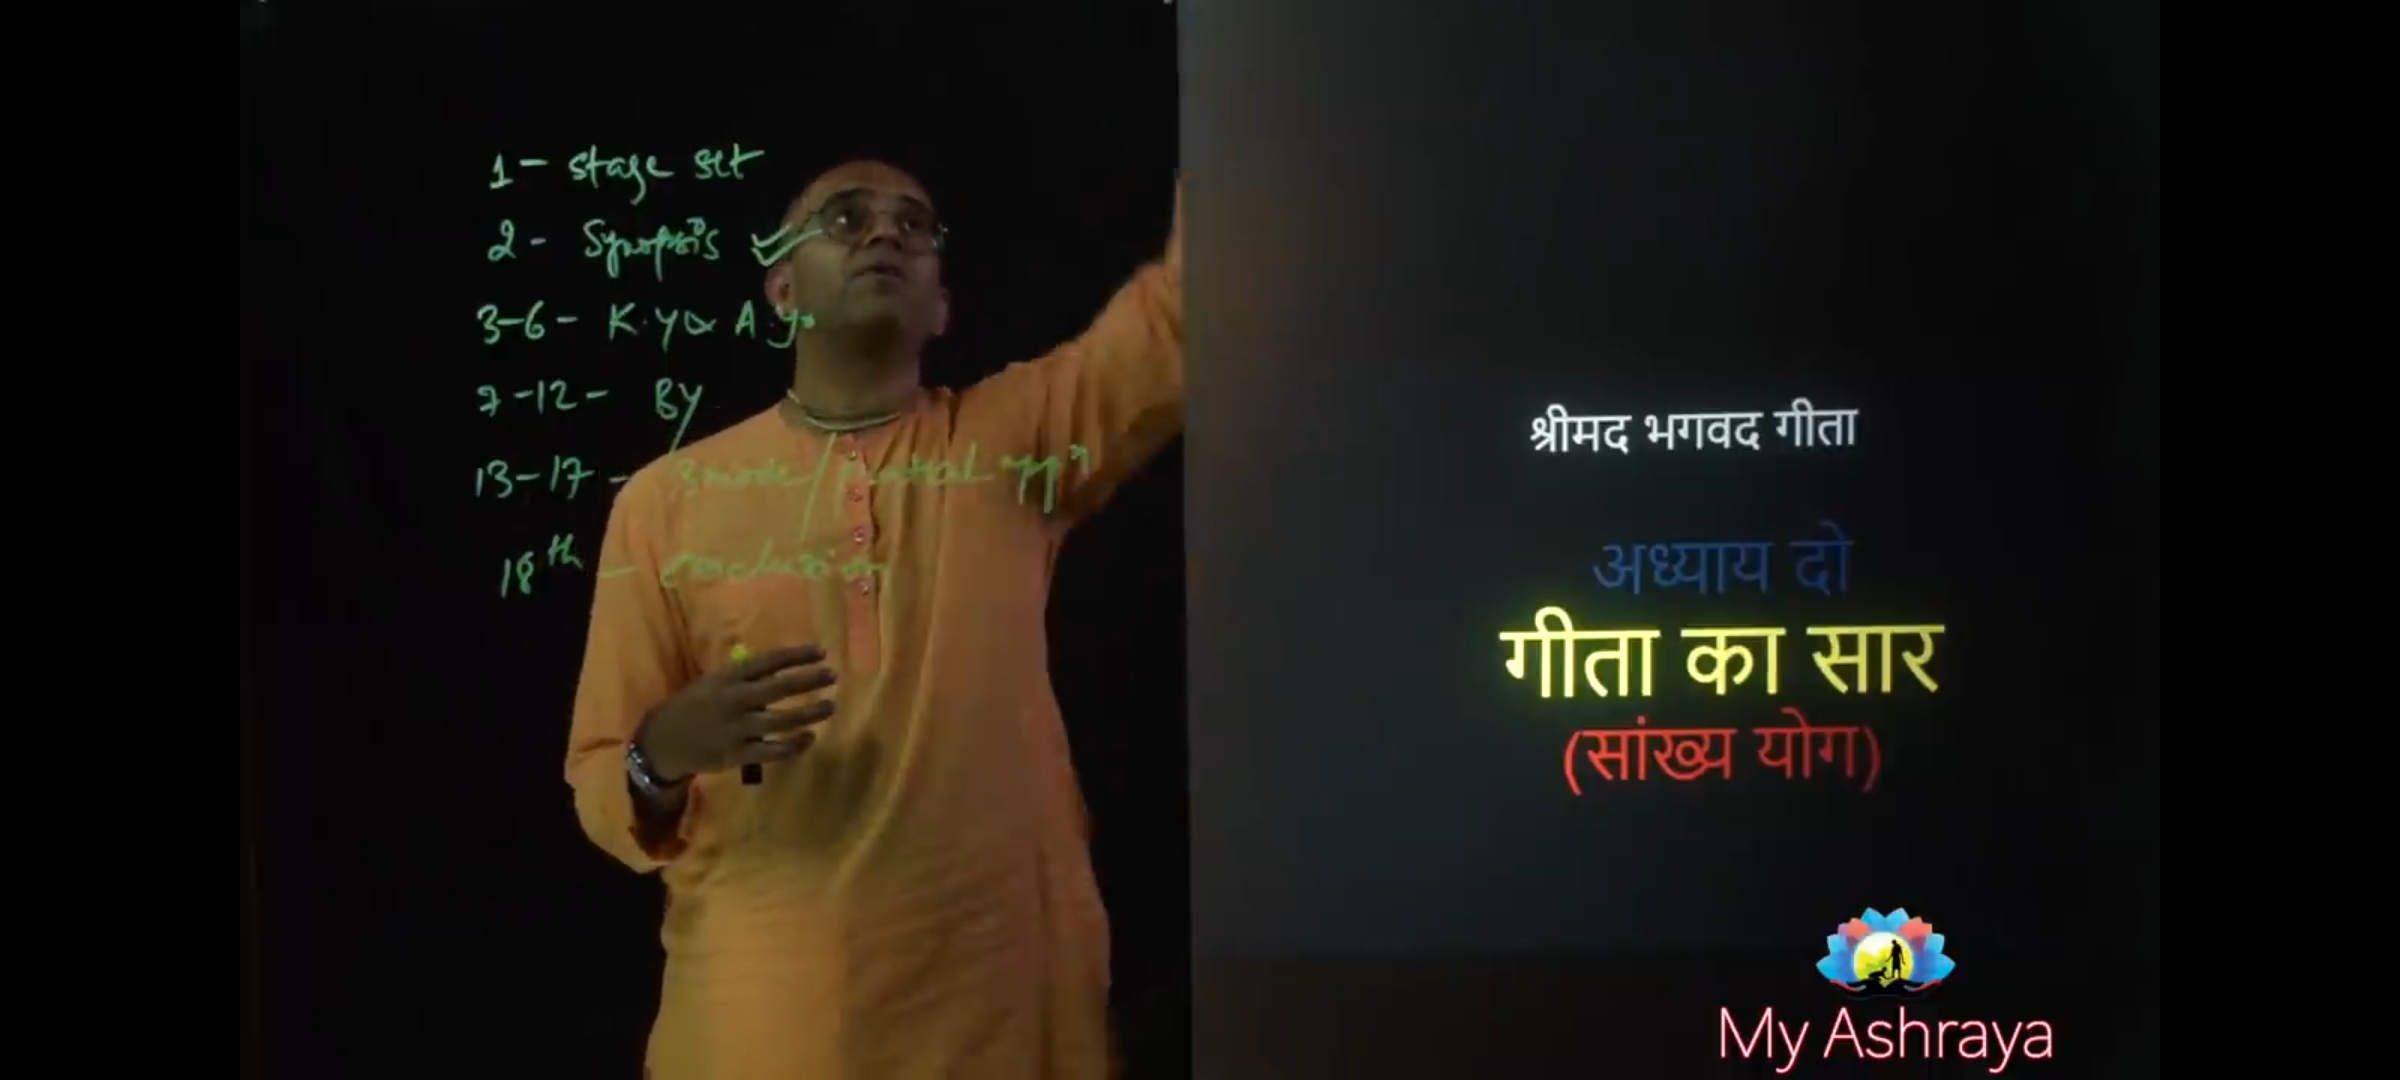 1 - stage set
2 - Synopsis
3-6 - K.Y & A.Y.
7-12 - BY
13-17 - 3 mode / practical appn
18th - conclusion
श्रीमद भगवद गीता
अध्याय दो
गीता का सार
(सांख्य योग)
My Ashraya